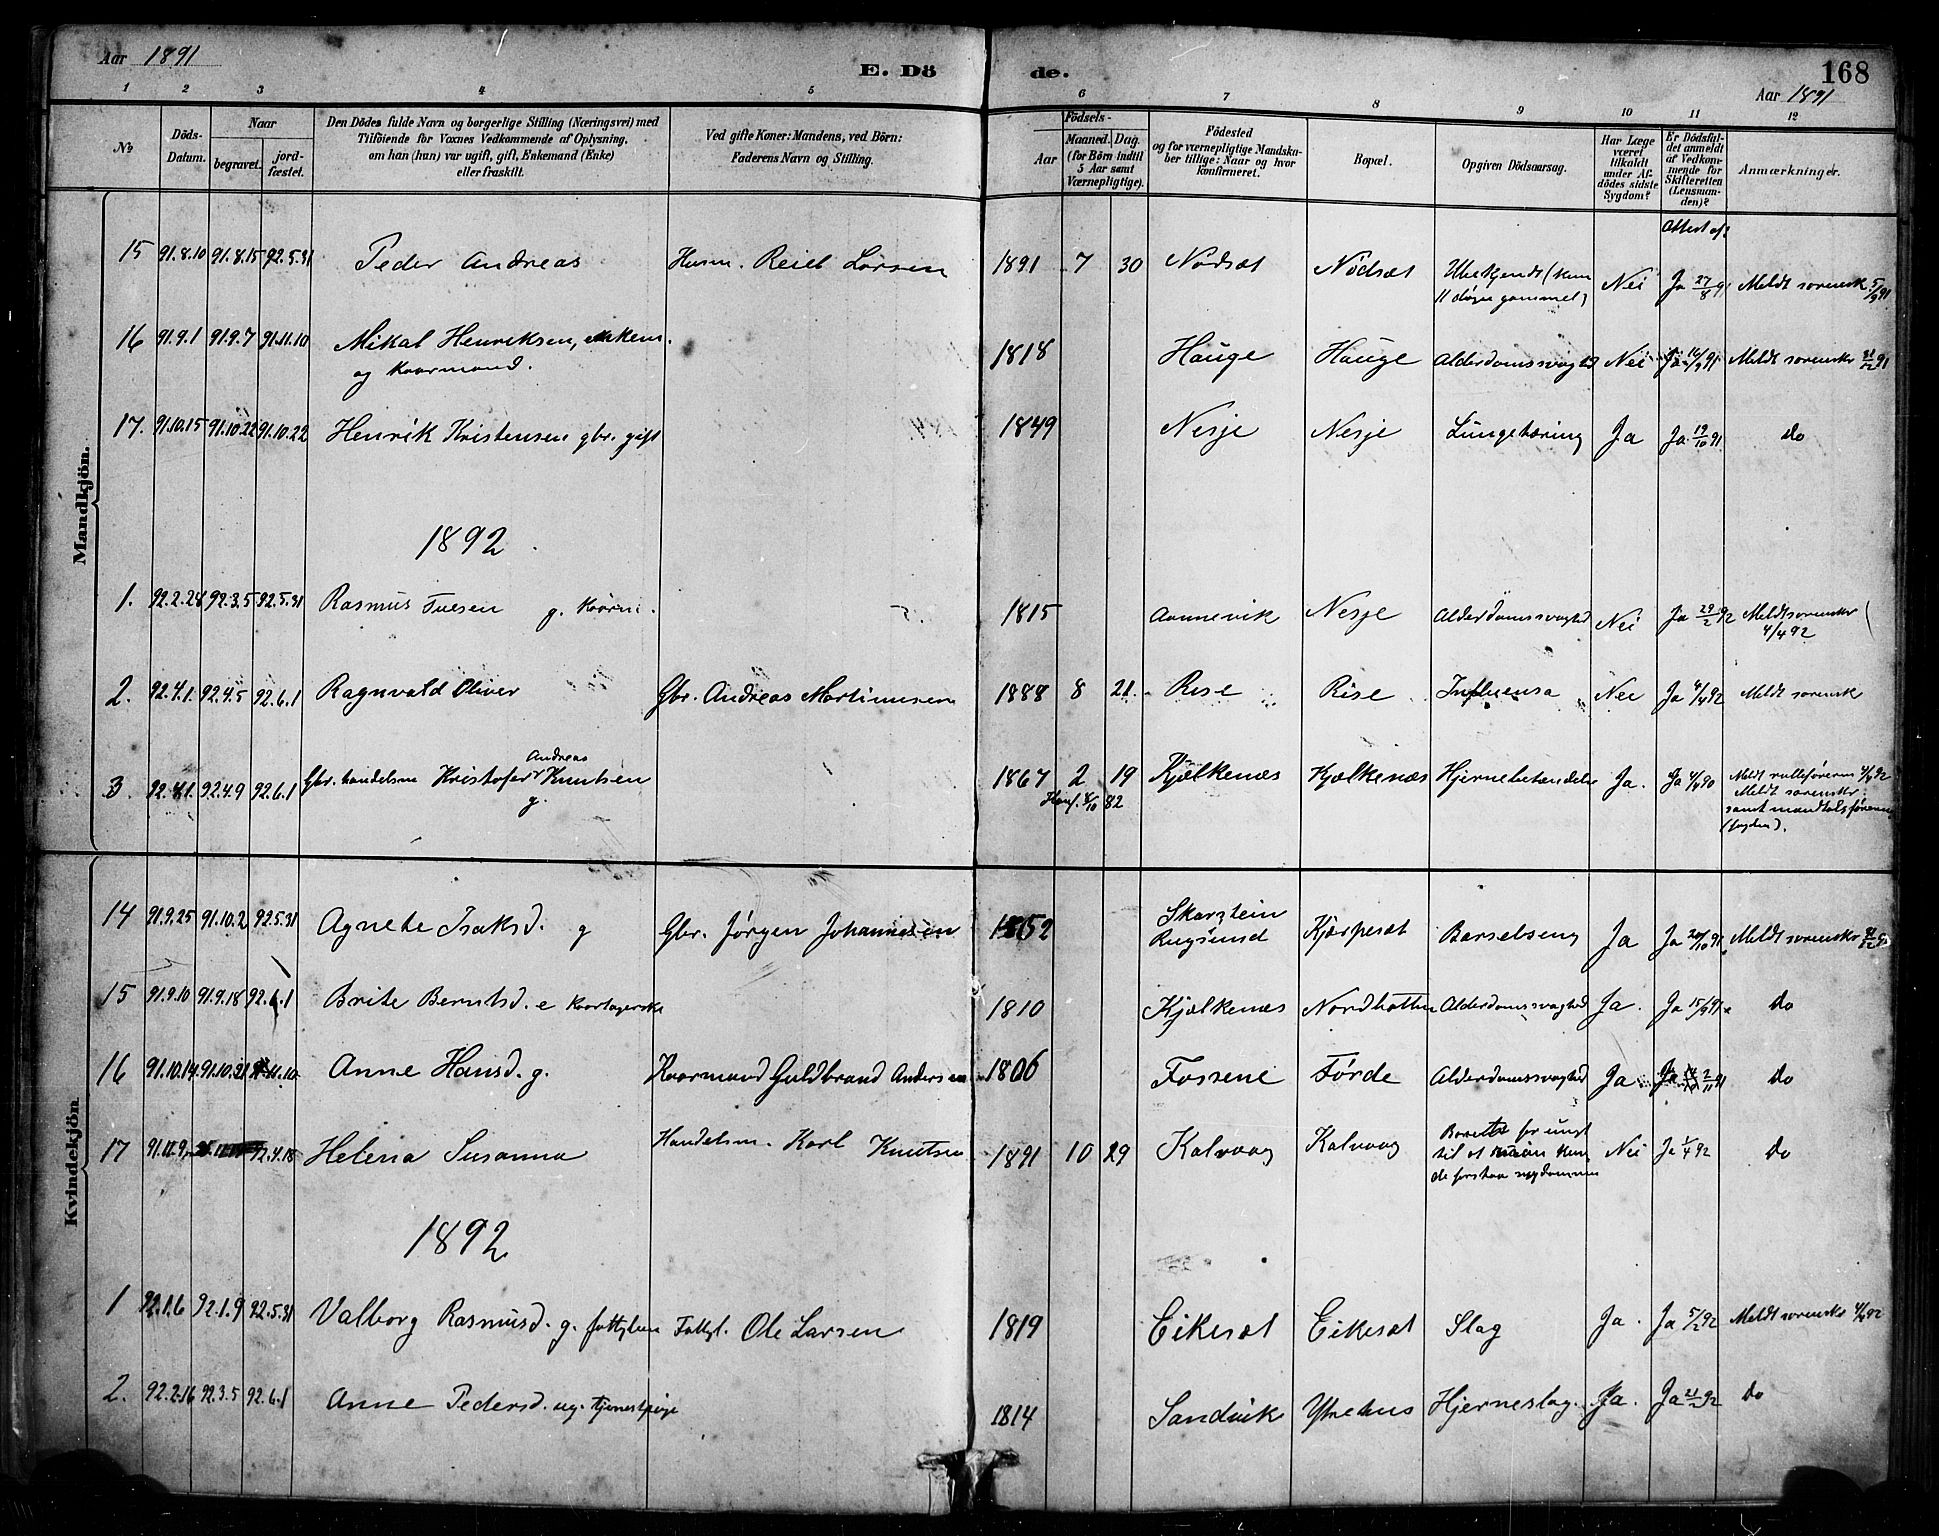 Aar 1891
E. Dö
de.
168
Aar 1891
1 2 3 4 5 6 7 8 9 10 11 12
No
Döds-Datum.
Naar
begravet.
jord-fæstet.
Den Dödes fulde Navn og borgerlige Stilling (Næringsvei) med
Tilföiende for Voxnes Vedkommende af Oplysning,
om han (hun) var ugift, gift, Enkemand (Enke)
eller fraskilt.
Ved gifte Koner: Mandens, ved Börn:
Faderens Navn og Stilling.
Födsels-
Aar
Maaned. Dag.
(for Börn indtil
5 Aar samt
Værnepligtige).
Födested
og for værnepligtige Mandska-
ber tillige: Naar og hvor
konfirmeret.
Bopæl.
Opgiven Dödsaarsag.
Har Læge
været
tilkaldt
under Af-
dödes sidste
Sygdom?
Er Dödsfal-
det anmeldt
af Vedkom-
mende for
Skifteretten
(Lensman-
den)?
Anmærkninger.
Attest af?
Mandkjön.
15 91.8.10 91.8.15 92.5.31 Peder Andreas Husm. Larsen 1891 7 30 Nødsæt Nødsæt Ubekjendt (kun
11 døgn gammel) Nei Ja 27/8 91 Meldt sorensk 5/9 91
16 91.9.1 91.9.7 91.11.10 Mikal Henriksen, enkem.
og kaarmand. 1818 Hauge Hauge Alderdomssvaghed Nei Ja 16/9 91 Meldt sorenskr 91
17. 91.10.15 91.10.22 91.10.22 Henrik Kristensen gbr. gift 1849 Nesje Nesje Lungetæring Ja Ja 19/10 91 do
1892
1. 92.2.28 92.3.5 92.5.31 Rasmus Ivesen g. kaarm. 1815 Aannevik Nesje Alderdomssvaghed Nei Ja 29/2 92 Meldt sorenskr
4/4 92
2. 92.4.1. 92.4.5 92.6.1 Ragnvald Oliver Gbr. Andreas Martinusen 1888 8 21. Rise Rise Influensa Nei Ja 4/4 92 Meldt sorensk
Andreas
3. 92.4.1. 92.4.9 92.6.1 Gbr. handelsm Kristofer Knutsen
g. 1867 2 19 Kjælkenæs Kjælkenæs Hjernebetændelse Ja. Ja 4/4 90 Meldt rulleføreren 4/4 92
Konf. 8/10 82
Meldt sorenskr
samt mandtalsføreren
(fogden).
Kvindekjön
14 91.9.25 91.10.2 92.5.31 Agnete Isaksd. g Gbr. Jørgen Johannesen 1852 Skarstein
Rugsund Kjærpesæt Barselseng Ja Ja 20/10 91 Meldt sorenskr
15 91.9.10 91.9.18 92.6.1 Brite Berntsd. e kaartagerske 1810 Kjælkenæs Nordbotten Alderdomssvaghed Ja. Ja 15/9 91 do
16 91.10.14 91.10.21 91.11.10 Anne Hansd. g. Kaarmand Guldbrand Andersen 1806 Fossene Førde Alderdomssvaghed Ja Ja 2/11 91 do
17 91.12.9 92.4.18 Helena Susanna Handelsm. Karl Knutsen 1891 10 29 Kalvaag Kalvaag Barnet for ungt
til at man kun
de forstaa sygdommen Nei Ja 1/4 92 do
1892
1 92.1.6 92.1.9 92.5.31 Valborg Rasmusd. g. fattiglem Fattigl. Ole Larsen 1819 Eikesæt Eikesæt Slag Ja. Ja 5/2 92 Meldt sorenskr 4/4 92
2. 92.2.16 92.3.5 92.6.1 Anne Pedersd. ug. tjenestpige 1814 Sandvik Ytrehus Hjerneslag. Ja. Ja 92 do